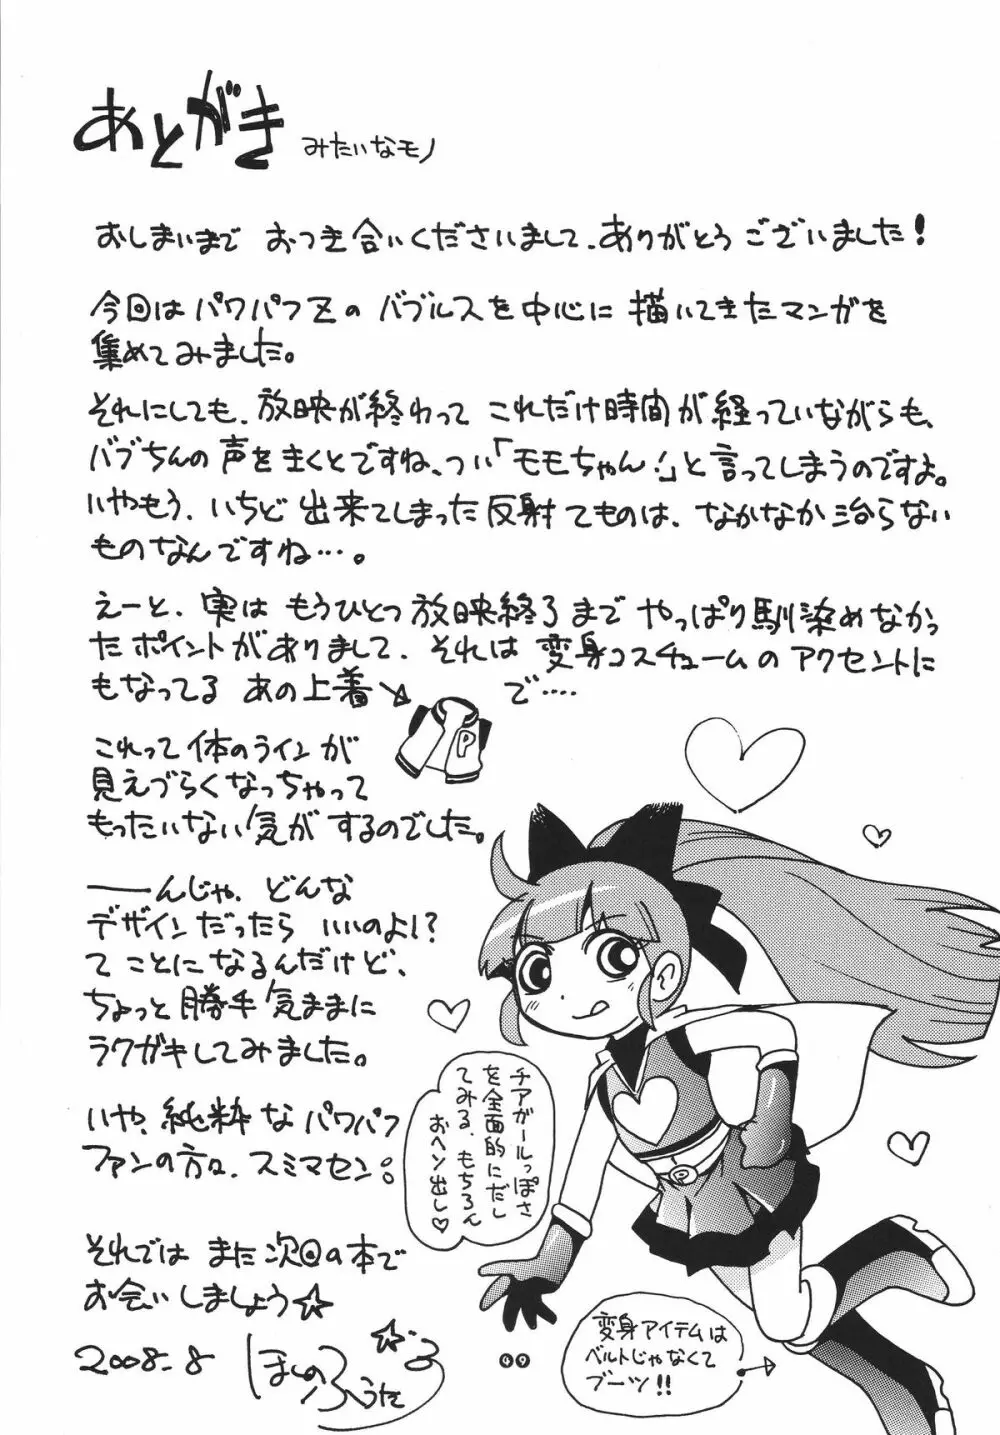 あとがき みたいなモノ
おしまいまで おつき合いくださいまして、ありがとうございました!
今回は パワパフZの バブルスを中心に 描いてきたマンガを
集めてみました。
それにしても、放映が終わって これだけ時間が経っていながらも、
バブちんの声をきくとですね、つい「モモちゃん!」と言ってしまうのですよ。
いやもう、いちど 出来てしまった反射てものは、なかなか治らない
ものなんですね…。
えーと、実は もうひとつ 放映終了まで やっぱり馴染めなかっ
たポイントがありまして、それは 変身コスチュームのアクセントに
もなってる あの上着
で‥‥
P
これって 体のラインが
見えづらくなっちゃって
もったいない気が するのでした。
――んじゃ、どんな
デザインだったら いいのよ!?
てことになるんだけど、
ちょっと勝手気ままに
ラクガキしてみました。
いや、純粋な パワパフ
ファンの方々、スミマセン。
それでは また次回の本で
お会いしましょう☆
2008.8 ほしのふうた
チアガールっぽさ
を全面的にだし
てみる。もちろん
おヘソ出し♡
P
変身アイテムは
ベルトじゃなくて
ブーツ!!
69